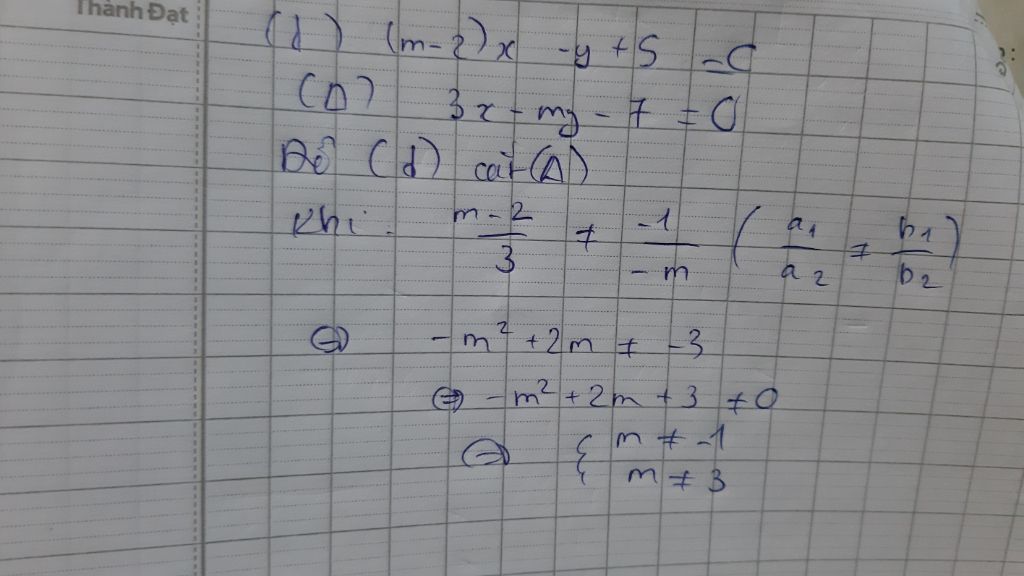 Thành Đạt
(d) (m-2)x -y + 5 = 0
(Δ) 3x - my - 7 = 0
Để (d) cắt (Δ)
Khi: \frac{m-2}{3} ≠ \frac{-1}{-m} ( \frac{a_1}{a_2} ≠ \frac{b_1}{b_2} )
⇔ -m² + 2m ≠ -3
⇔ -m² + 2m + 3 ≠ 0
⇔ { m ≠ -1
m ≠ 3